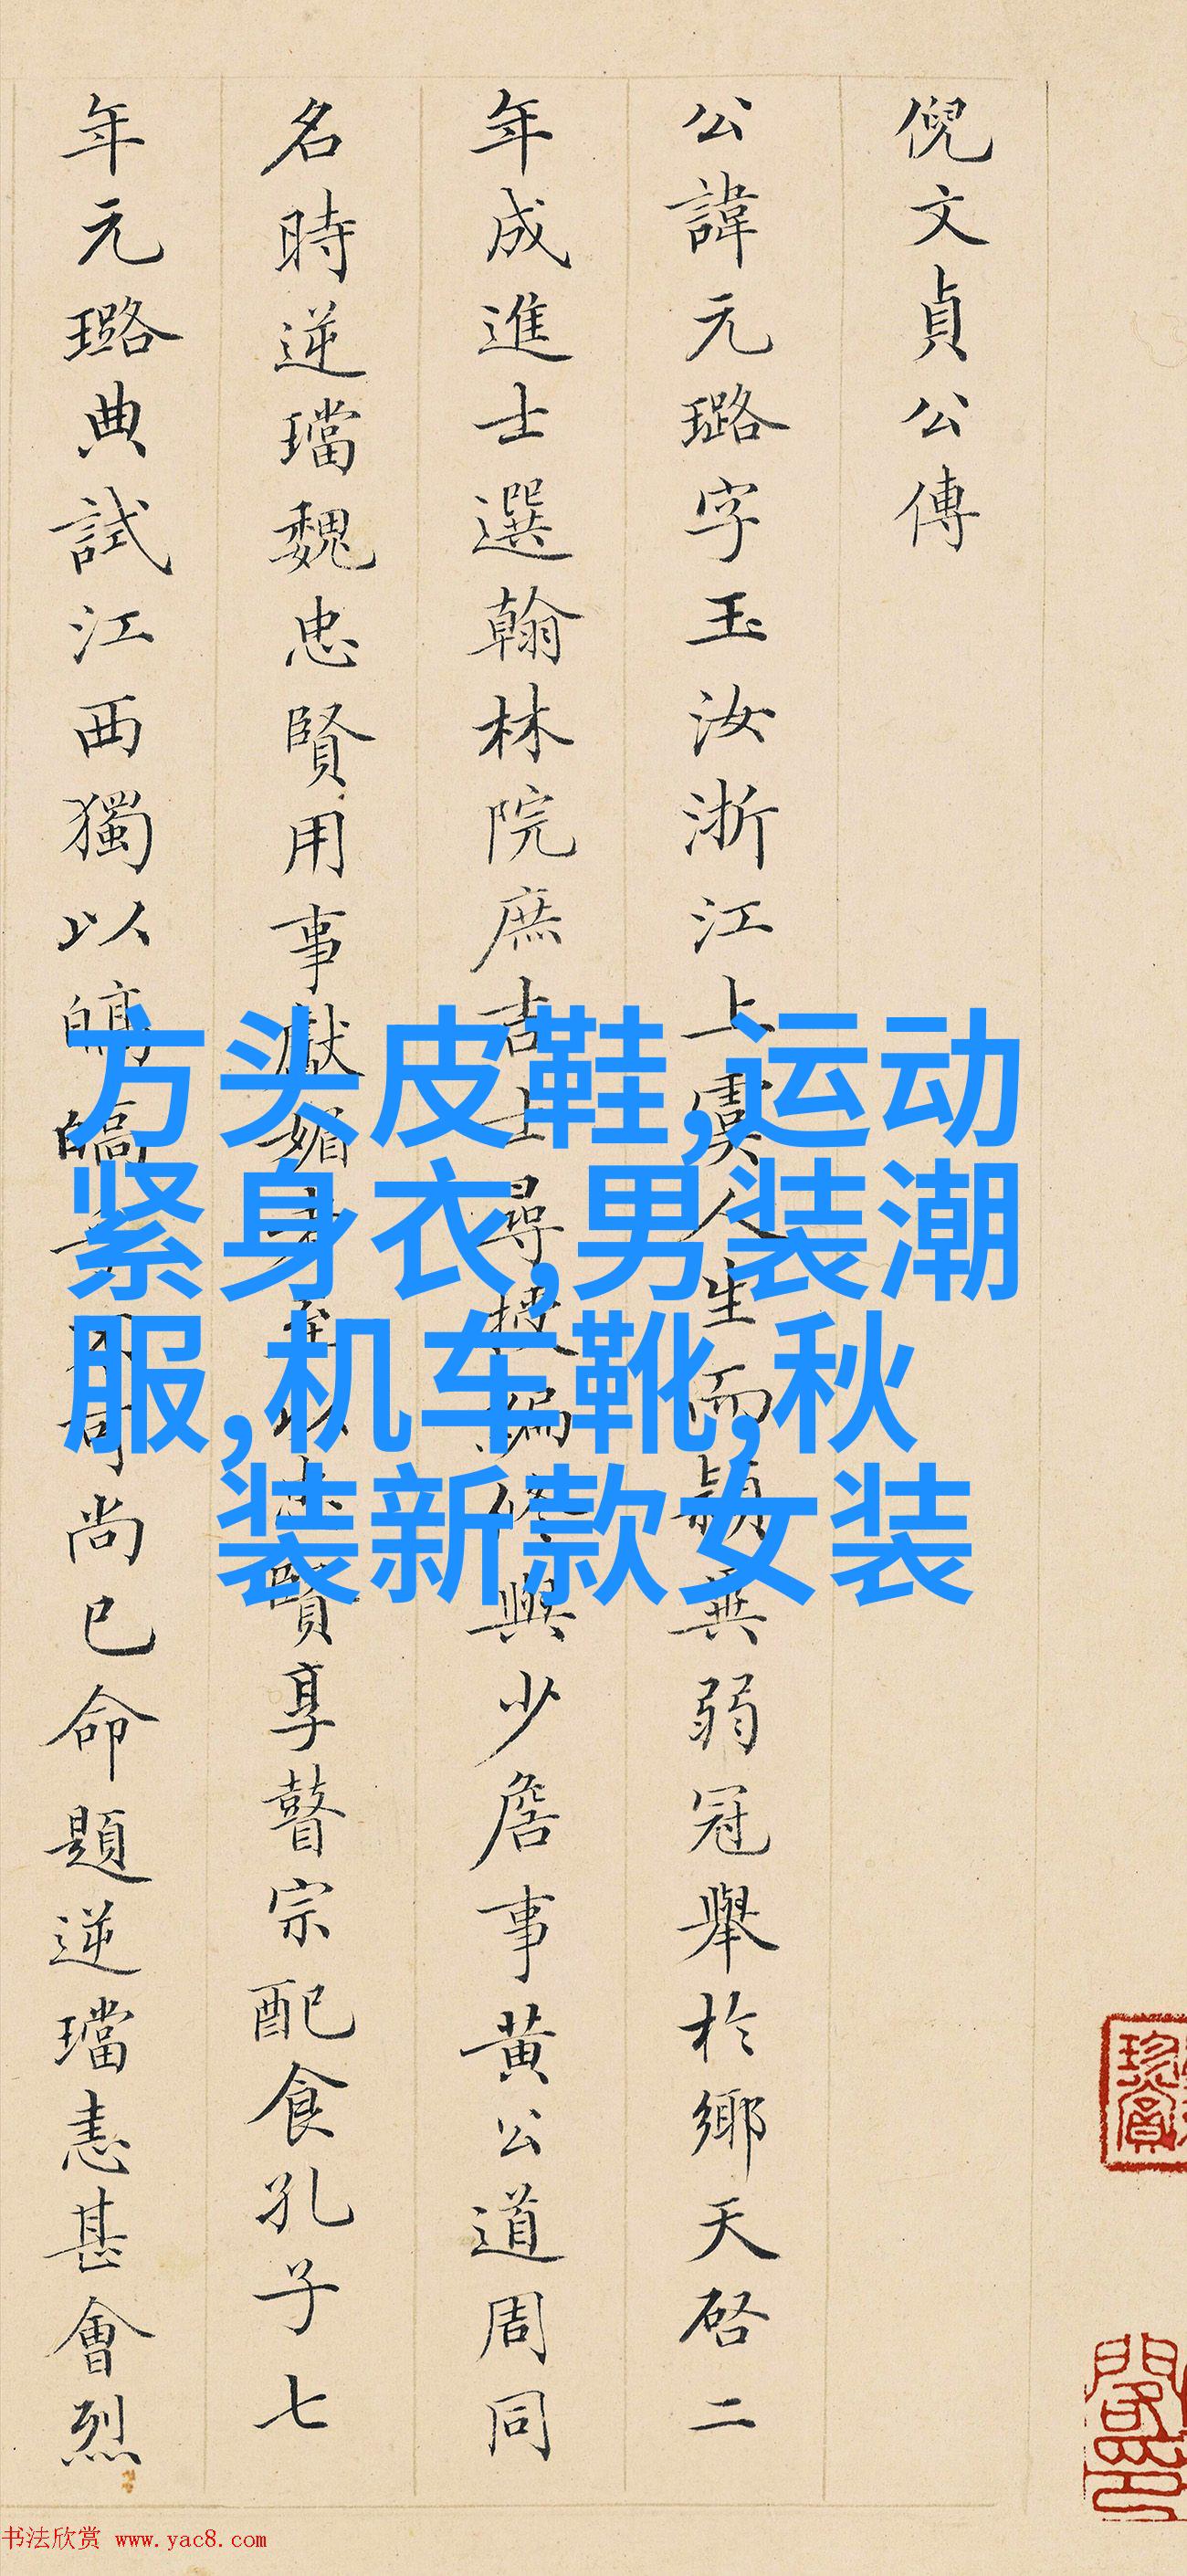 倪文貞公傳
公諱元璐字玉汝浙江上虞人生而穎異弱冠舉於鄉天啓二
年成進士選翰林院庶吉士尋授編修與少詹事黃公道周同
名時逆璫魏忠賢用事獻媚者至以忠賢享瞽宗配食孔子七
年元璐典試江西獨以皜皜乎不可尚已命題逆璫恚甚會烈
方头皮鞋,运动
紧身衣,男装潮
服,机车靴,秋
装新款女装
书法欣赏 www.yac8.com